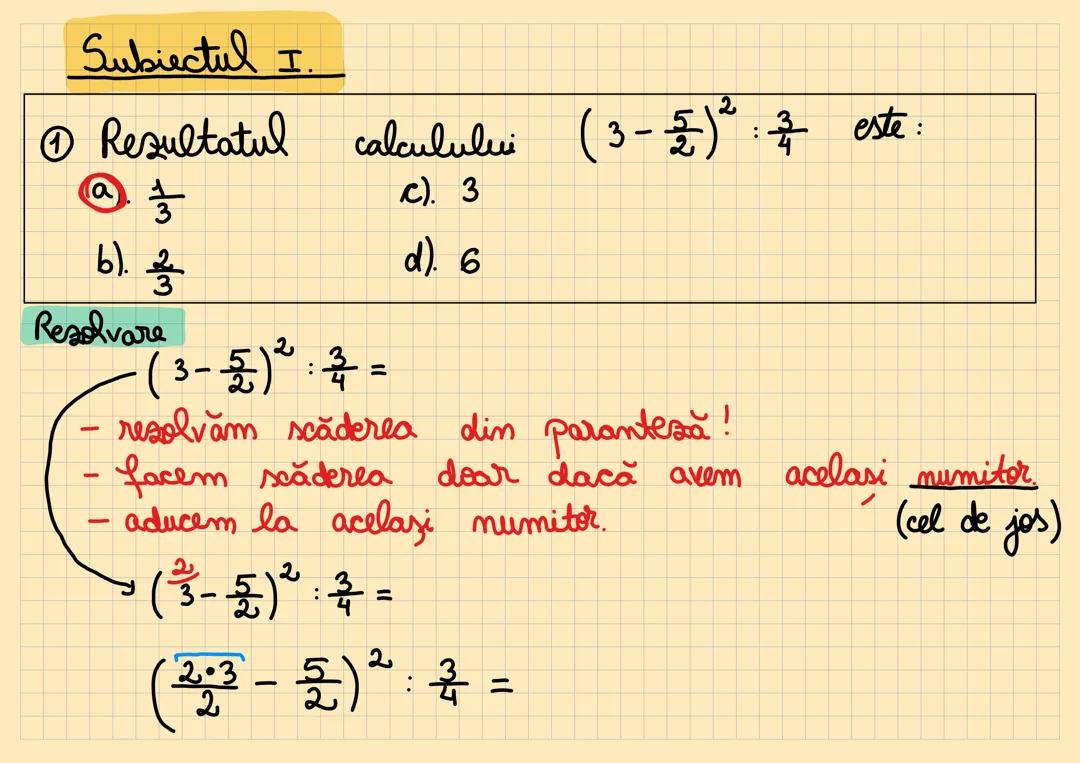 Subiectul I.
① Rezultatul calculului (3 - 5/2)² : 3/4 este:
a). 1/3 c). 3
b). 2/3 d). 6
Rezolvare
(3 - 5/2)² : 3/4 =
- rezolvăm scăderea din paranteză!
- facem scăderea doar dacă avem același numitor.
(cel de jos)
- aducem la același numitor.
(²⁾3 - 5/2)² : 3/4 =
(2•3/2 - 5/2)² : 3/4 =